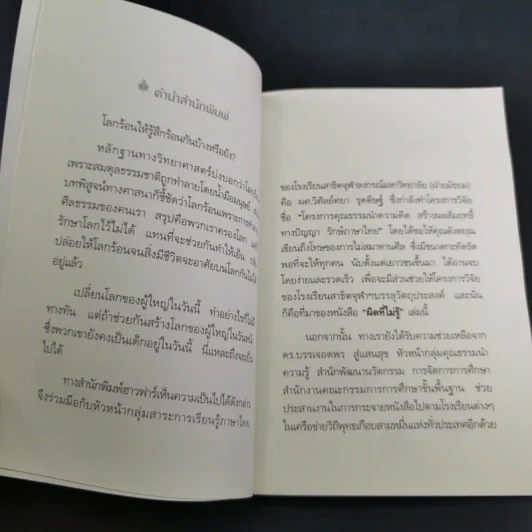 คำนำสำนักพิมพ์
โลกร้อนให้รู้สึกร้อนกันบ้างหรือยัง?
หลักฐานทางวิทยาศาสตร์บ่งบอกว่าโลก
เพราะสมดุลธรรมชาติถูกทำลายโดยน้ำมือมนุษย์
บทพิสูจน์ทางศาสนาก็ชี้ชัดว่าโลกร้อนเพราะการ
ศีลธรรมของคนเรา สรุปคือพวกเราครองโลก
รักษาโลกไว้ไม่ได้ แทนที่จะช่วยกันทำให้เย็น
ปล่อยให้โลกร้อนจนสิ่งมีชีวิตจะอาศัยบนโลกกันไม่ได้
อยู่แล้ว
เปลี่ยนโลกของผู้ใหญ่ในวันนี้ ทำอย่างไรก็ไม่
ทางทัน แต่ถ้าช่วยกันสร้างโลกของผู้ใหญ่ในวันหน้า
ซึ่งพวกเขายังคงเป็นเด็กอยู่ในวันนี้ นี่แหละถึงจะเป็น
ไปได้
ทางสำนักพิมพ์ฮาวฟาร์เห็นความเป็นไปได้ดังกล่าว
จึงร่วมมือกับหัวหน้ากลุ่มสาระการเรียนรู้ภาษาไทย
ของโรงเรียนสาธิตจุฬาลงกรณ์มหาวิทยาลัย (ฝ่ายมัธยม)
คือ ผศ.วิศัลย์ศยา รุดดิษฐ์ ซึ่งกำลังทำโครงการวิจัย
ชื่อ "โครงการคุณธรรมนำความคิด สร้างผลสัมฤทธิ์
ทางปัญญา รักษ์ภาษาไทย" โดยได้ขอให้คุณดังตฤณ
เขียนถึงโทษของการไม่สมาทานศีล ซึ่งมีขนาดกะทัดรัด
พอที่จะให้ทุกคน นับตั้งแต่เยาวชนขึ้นมา ได้อ่านจบ
โดยง่ายและรวดเร็ว เพื่อจะมีส่วนช่วยให้โครงการวิจัย
ของโรงเรียนสาธิตจุฬาฯบรรลุวัตถุประสงค์ และนั่น
ก็คือที่มาของหนังสือ "ผิดที่ไม่รู้" เล่มนี้
นอกจากนั้น ทางเรายังได้รับความช่วยเหลือจาก
ดร.บรรเจอดพร สู่แสนสุข หัวหน้ากลุ่มคุณธรรมนำ
ความรู้ สำนักพัฒนานวัตกรรม การจัดการการศึกษา
สำนักงานคณะกรรมการการศึกษาขั้นพื้นฐาน ช่วย
ประสานงานในการกระจายหนังสือไปตามโรงเรียนต่างๆ
ในเครือข่ายวิถีพุทธเกือบสามหมื่นแห่งทั่วประเทศอีกด้วย